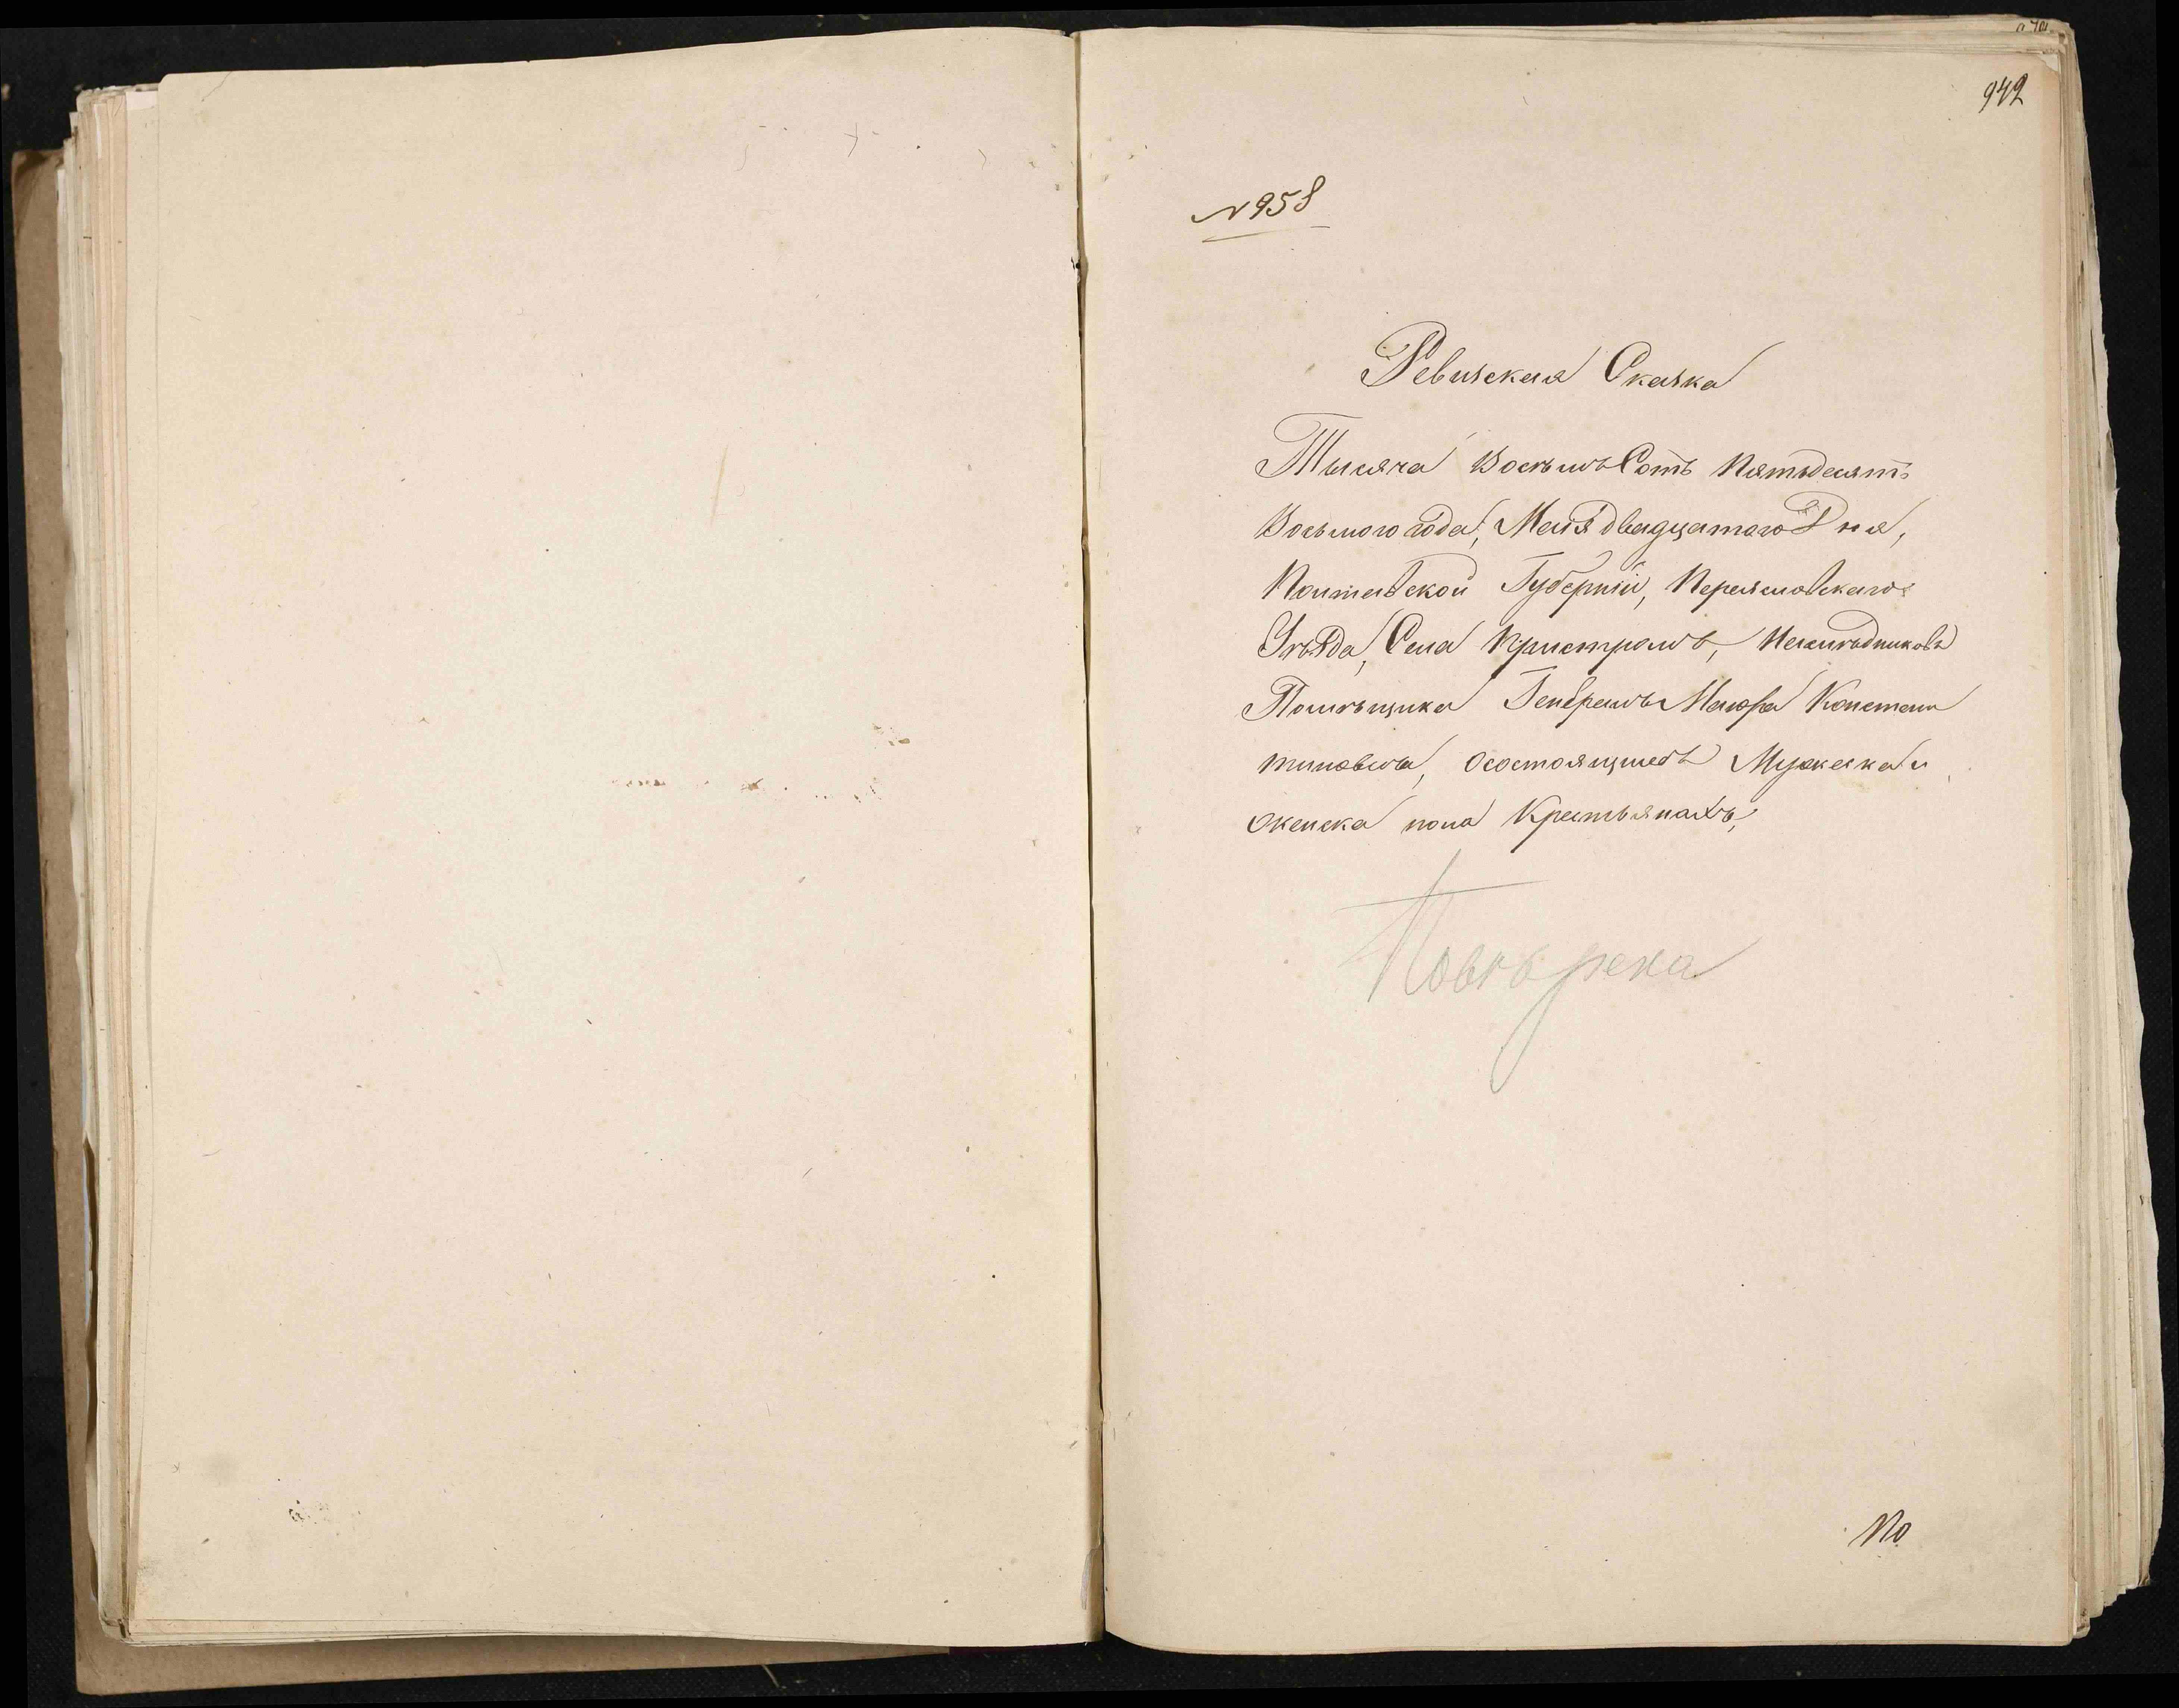 942
№ 958
Ревизская Сказка
Тысяча Восемь Сотъ Пятьдесятъ
Восьмого года, Мая двадцатого Дня,
Полтавской Губерніи, Переясловскаго
Уѣзда, Села Пристромъ, Наслѣдниковъ
Помѣщика Генералъ Маюра Констан
тиновича, осостоящихъ Мужеска и
женска пола Крестьянахъ,
Повѣрена
По